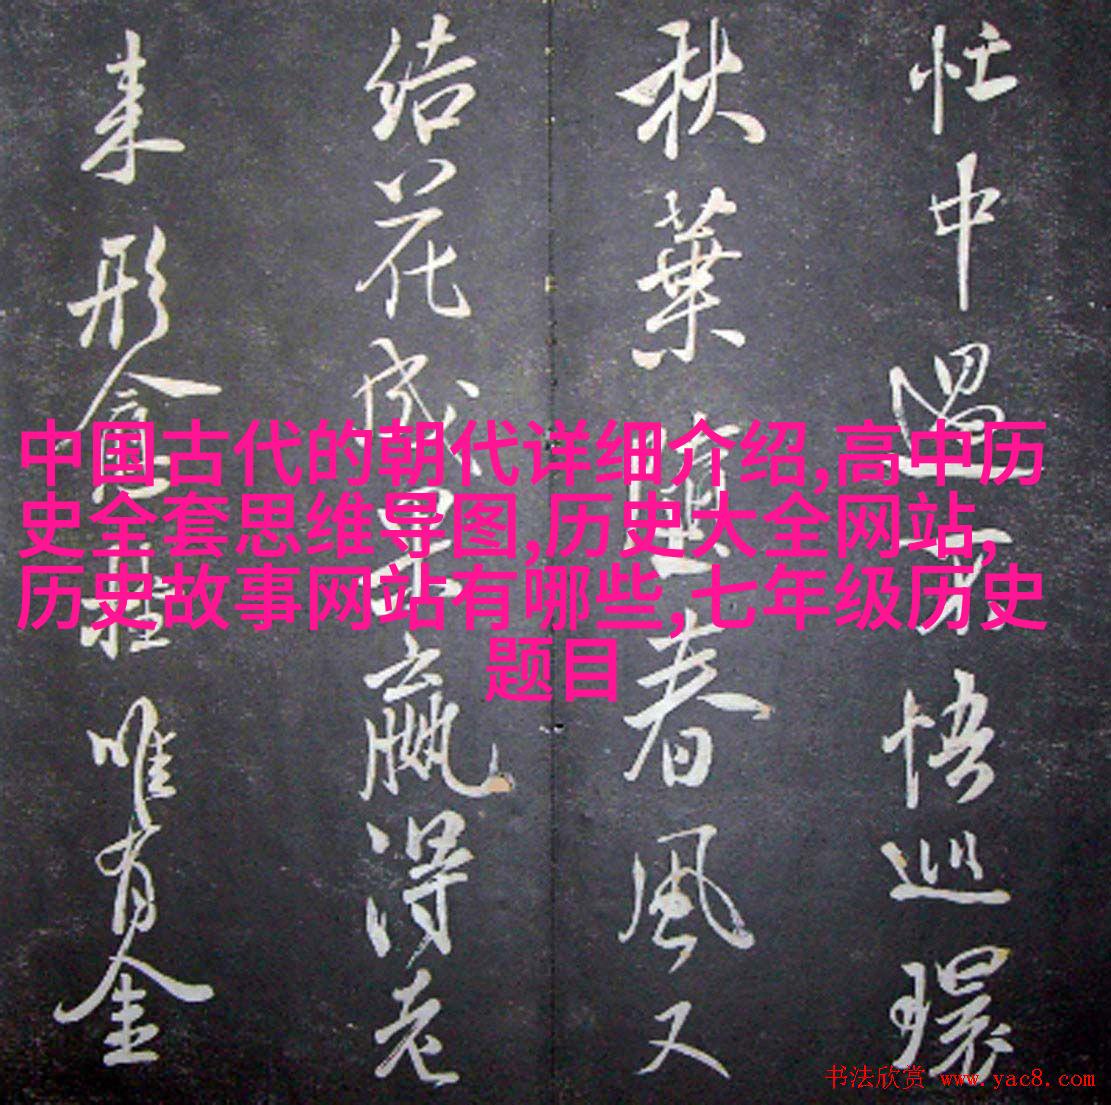 忙中過悟巡環
秋葉春風又
结花成嬴得老
来形唯有金
中国古代的朝代详细介绍,高中历
史全套思维导图,历史大全网站,
历史故事网站有哪些,七年级历史
题目
书法欣赏 www.yac8.com